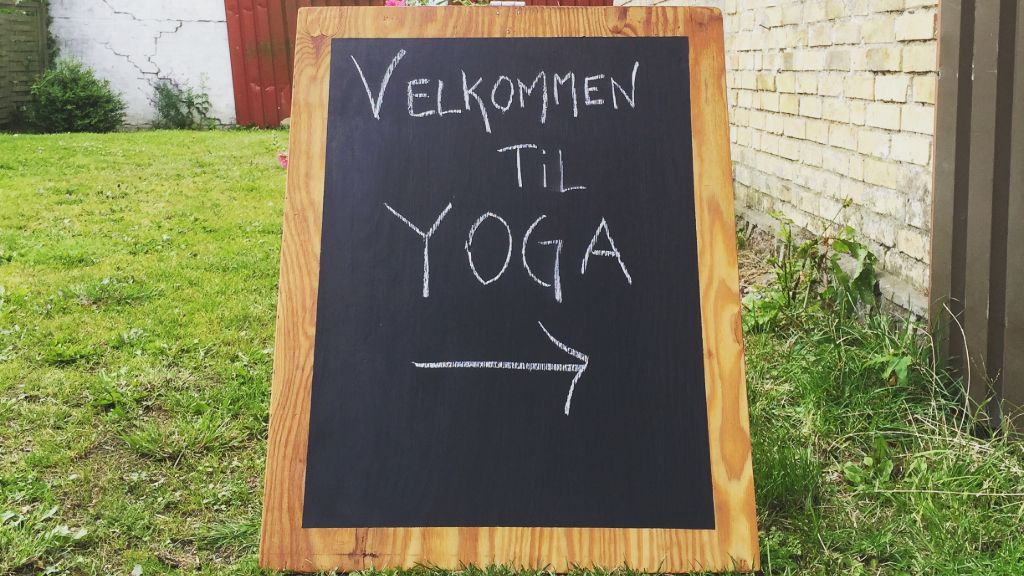 VELKOMMEN
TiL
YOGA
→